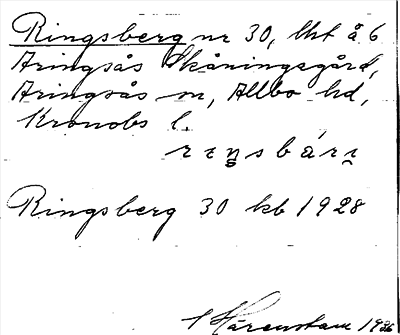 Ringsberg nr 30, lht å 6
Aringsås Skåningsgård,
Aringsås sn, Allbo hd,
Kronobs l.
Ringsberg 30 kb 1928
Härenstam 1936